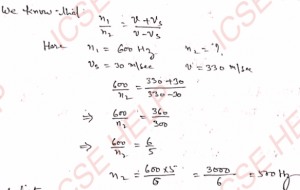 We know that
n₁/n₂ = (v + vₛ)/(v - vₛ)
Here n₁ = 600 Hz n₂ = ?
vₛ = 30 m/sec v = 330 m/sec
600/n₂ = (330 + 30)/(330 - 30)
⇒ 600/n₂ = 360/300
⇒ 600/n₂ = 6/5
n₂ = (600 × 5)/6 = 3000/6 = 500 Hz
ICSE HELP